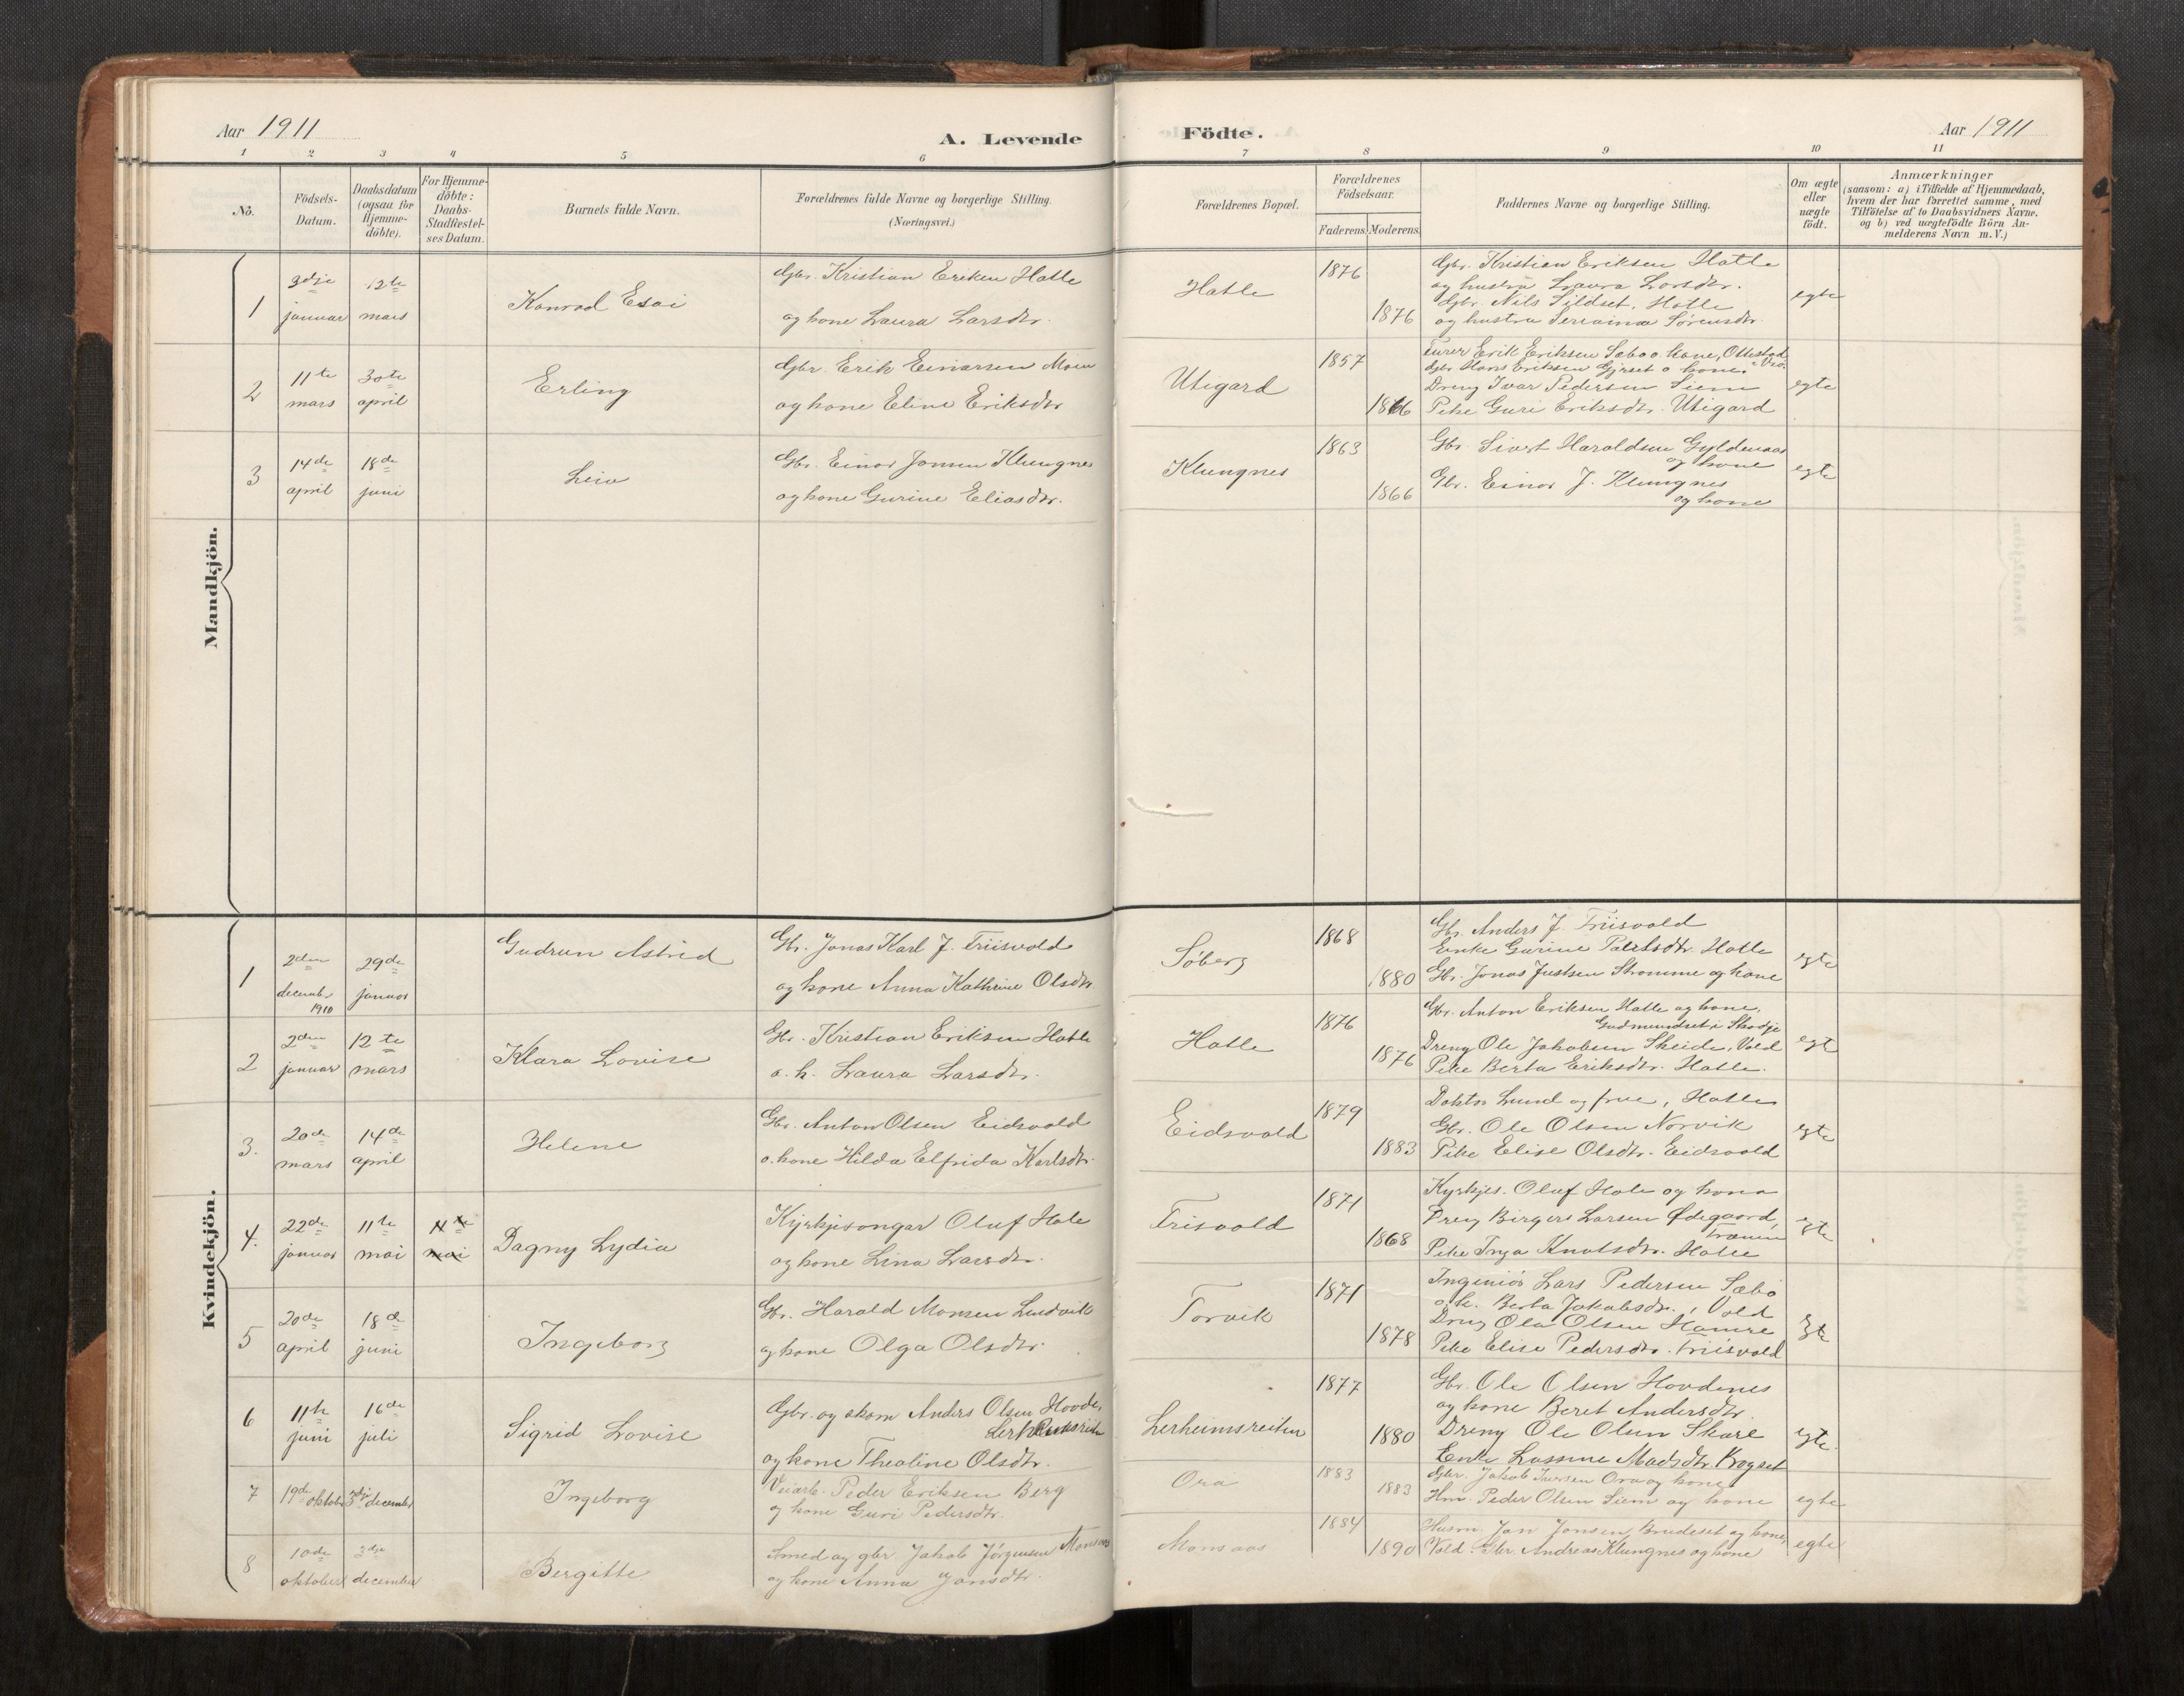 Aar 1911
A. Levende Födte.
Aar 1911
1 2 3 4 5 6 7 8 9 10 11
No.
Födsels-Datum.
Daabsdatum (ogsaa for Hjemme-döbte).
For Hjemme-döbte: Daabs-Stadfæstel-ses Datum.
Barnets fulde Navn.
Forældrenes fulde Navne og borgerlige Stilling.
(Næringsvei.)
Forældrenes Bopæl.
Forældrenes Födselsaar.
Faderens. Moderens.
Faddernes Navne og borgerlige Stilling.
Om ægte eller uægte födt.
Anmærkninger
(saasom: a) i Tilfælde af Hjemmedaab,
hvem der har forrettet samme, med
Tilföielse af to Daabsvidners Navne.
og b) ved uægtefödte Börn An-
melderens Navn m. V.)
Mandkjön.
1
3dje januar
12te mars
Konrad Esai
Gbr. Kristian Eriken Hatle
og kone Laura Larsdtr.
Hatle
1876
1876
Gbr. Kristian Eriksen Hatle
og hustru Laura Larsdtr.
Gbr. Nils Sildset, Hatle
og hustru Seriaina Sørensdtr.
egte
2
11te mars
30te april
Erling
Gbr. Erik Einarsen Moen
og kone Eline Eriksdtr
Utigard
1857
1866
Furer Erik Eriksen Sæbø o. kone, Ottestad
Gbr. Hans Eriksen Gjrset o kone.
Dreng Ivar Pedersen Siem
Pike Guri Eriksdtr. Utigard
egte
3
14de april
18de juni
Leiv
Gbr. Einar Jonsen Klungnes
og kone Gurine Eliasdtr.
Klungnes
1863
1866
Gbr. Sivert Haraldsen Gyldenaas
og kone
Gbr. Einar J. Klungnes
og kone
egte
Kvindekjön.
1
2den decembr 1910
29de januar
Gudrun Astrid
Gbr. Jonas Karl J. Friisvold
og kone Anna Kathrine Olsdtr.
Søberg
1868
1880
Gbr. Anders J. Friisvold
Enke Gurine Paulsdtr. Hatle
Gbr. Jonas Justsen Stromme og kone
egte
2
2den januar
12te mars
Klara Lovise
Gbr. Kristian Eriksen Hatle
o. k. Laura Larsdtr.
Hatle
1876
1876
Gbr. Anton Eriksen Hatle og kone,
Gudmundset i Skodje
Dreng Ole Jakobsen Skeide, Vold
Pike Berta Eriksdtr. Hatle.
egte
3.
20de mars
14de april
Helene
Gbr. Anton Olsen Eidsvold
o. kone Hilda Elfrida Karlsdtr.
Eidsvold
1879
1883
Doktor Lund og frue, Hatle
Gbr. Ole Olsen Norvik
Pike Elise Olsdtr. Eidsvold
egte
4.
22de januar
11te mai
11te mai
Dagny Lydia
Kyrkjesongar Oluf Hole
og kone Lina Larsdtr.
Frisvold
1871
1868
Kyrkjes. Oluf Hole og kona
Dreng Birger Larsen Ødegaard,
Pike Inga Knutsdtr. Hatle
egte
5
20de april
18de juni
Ingeborg
Gbr. Harald Monsen Lindvik
og kone Olga Olsdtr.
Torvik
1871
1878
Ingeniør Lars Pedersen Sæbø
o. k. Berta Jakobsdtr., Vold
Dreng Ola Olsen Hamre
Pike Elise Pedersdtr. Friisvold
egte
6
11te juni
16de juli
Sigrid Lovise
Gbr. og skom Anders Olsen Hovde,
Lerheimsreiten
og kone Thealine Olsdtr.
Lerheimsreiten
1877
1880
Gbr. Ole Olsen Hovdenes
og kone Beret Andersdtr.
Dreng Ole Olsen Skare
Enke Lassine Madsdtr. Bogset
egte.
7
19de oktober
3dje december
Ingeborg
Veiarb. Peder Eriksen Berg
og kone Guri Pedersdtr.
Ora
1883
1883
Gbr. Jakob Iversen Ora og kone
Hm. Peder Olsen Siem og kone
egte
8
10de oktober
3dje december
Bergitte
Smed og gbr. Jakob Jørgensen Monsaas
og kone Anna Jonsdtr.
Monsaas
1884
1890
Husm. Jon Jonsen Brudeset og kone,
Vold. Gbr. Andreas Klungnes og kone
egte